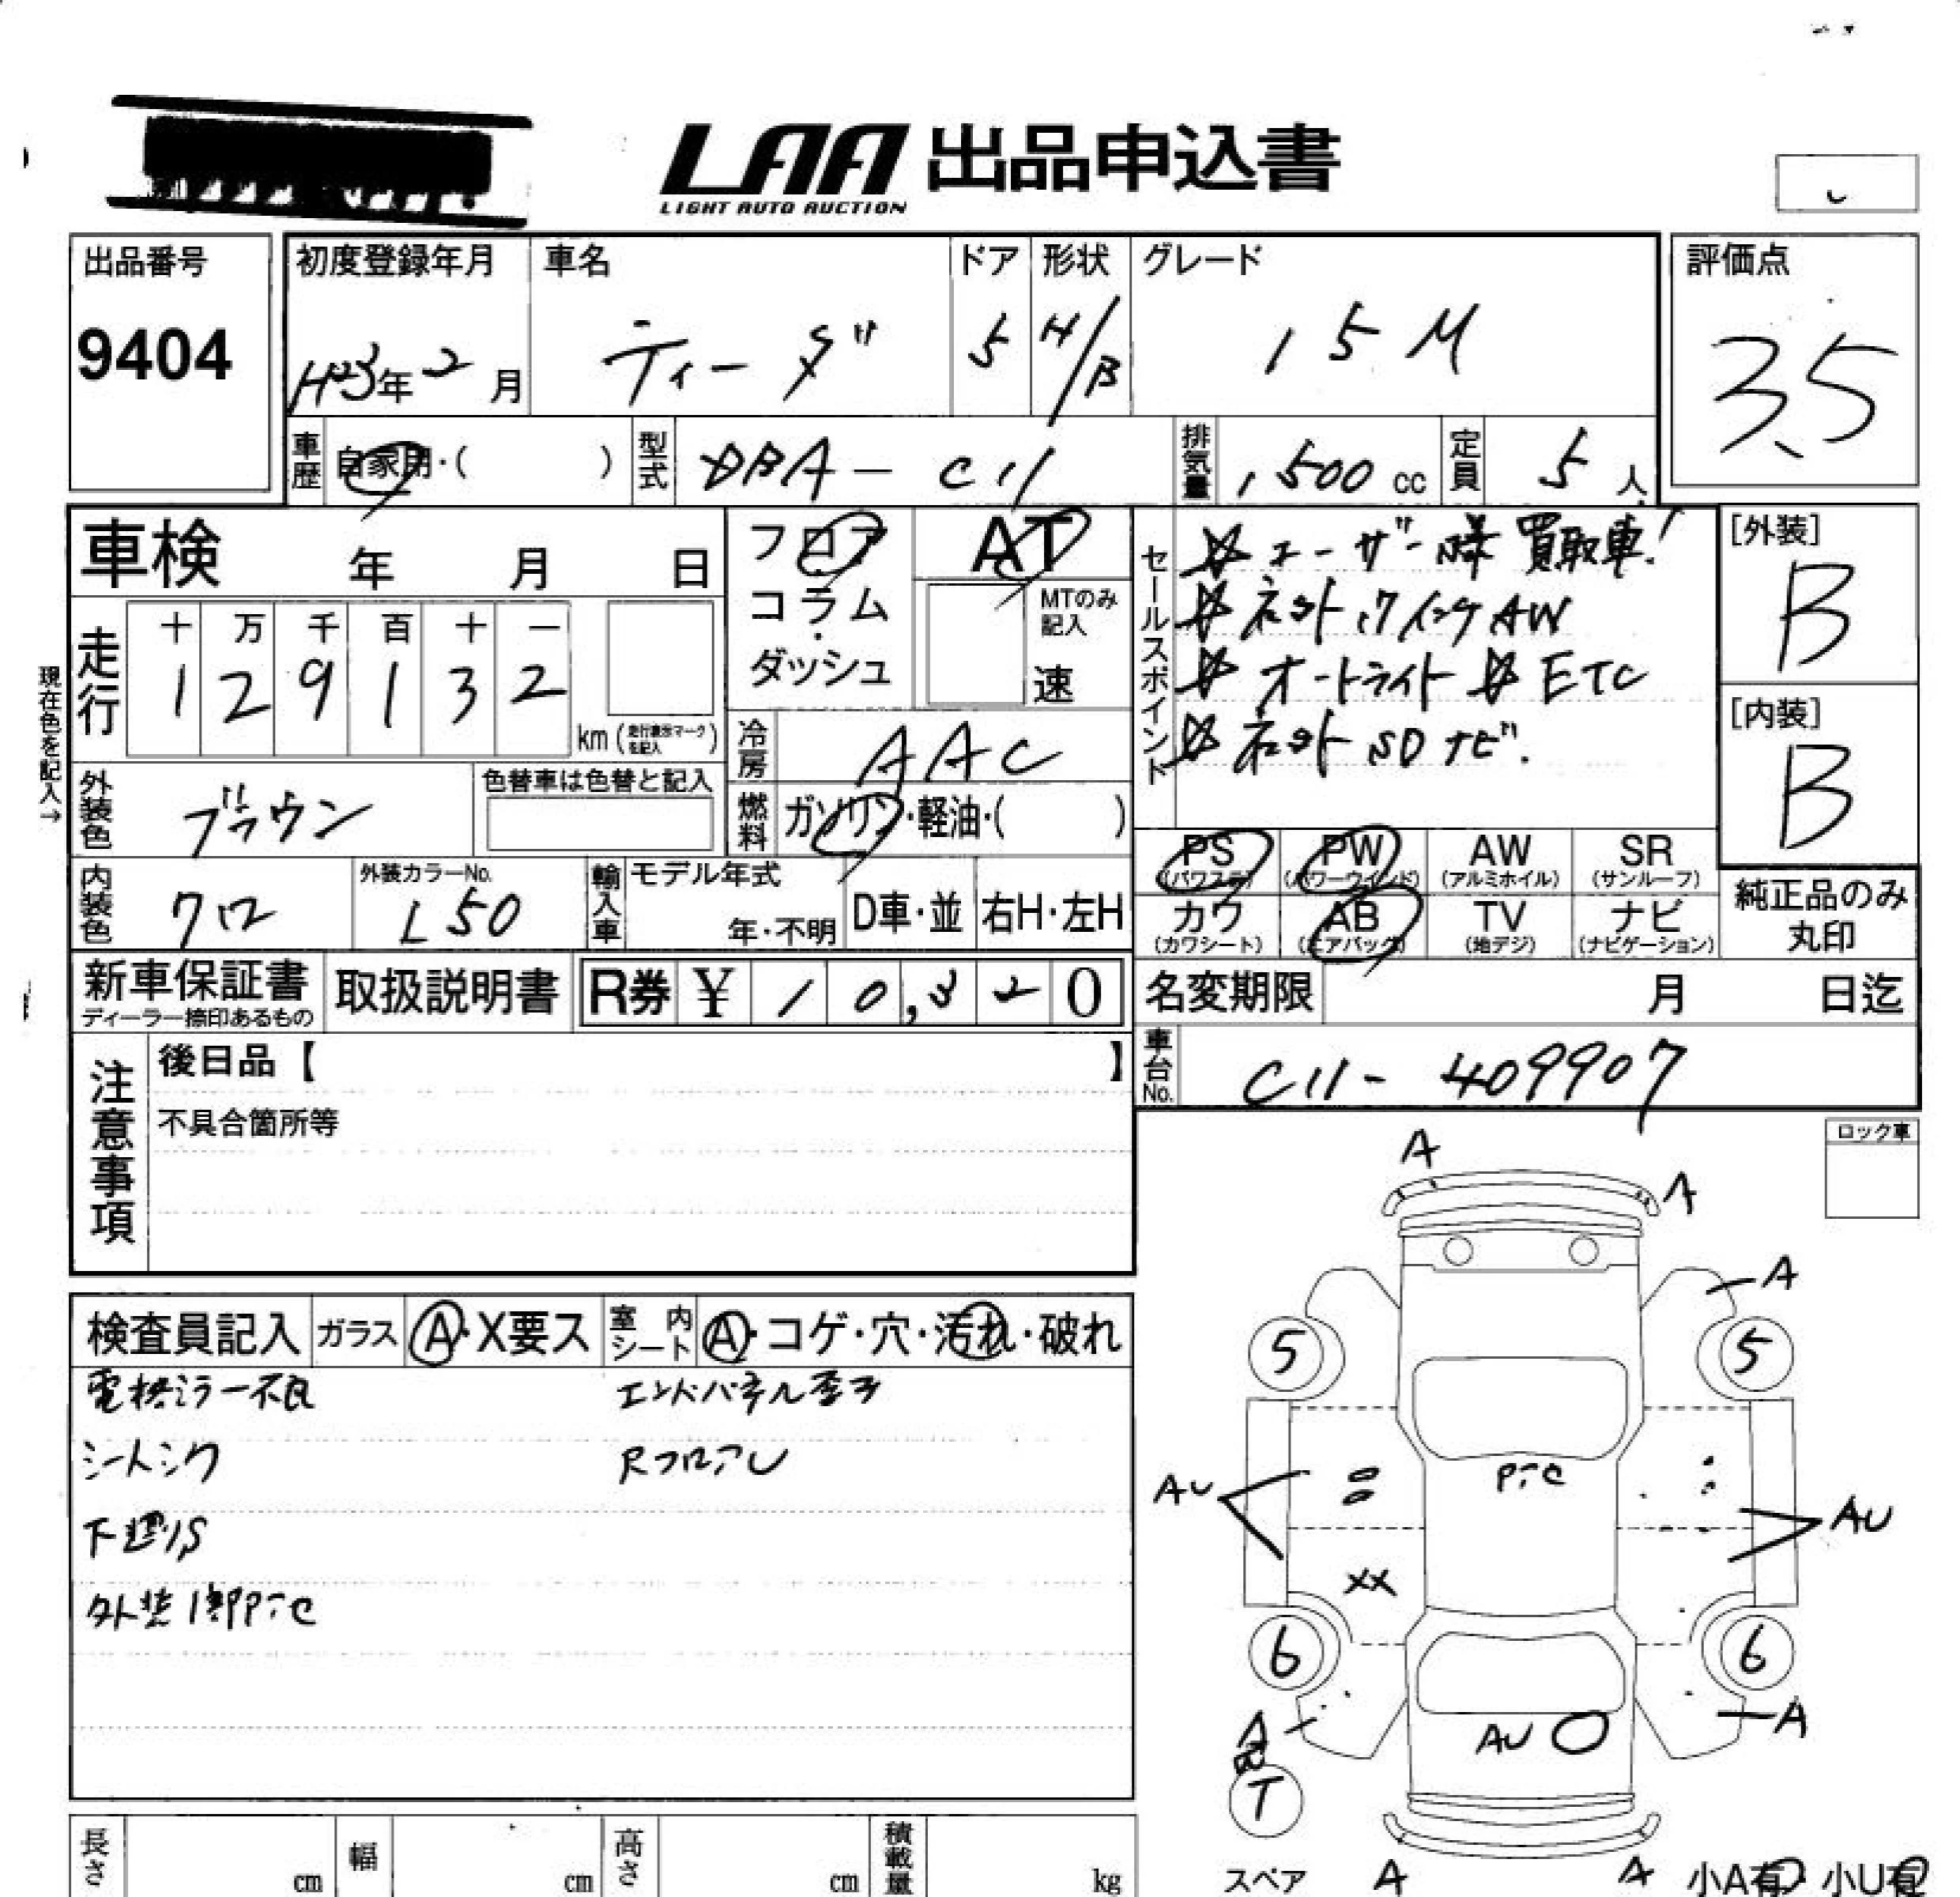 LAA 出品申込書
LIGHT AUTO AUCTION
出品番号
9404
初度登録年月
H23年 2月
車名
ティーダ
ドア
5
形状
H/B
グレード
15M
評価点
3.5
車歴
自家用・( )
型式
DBA-C11
排気量
1,500 cc
定員
5 人
車検 年 月 日
フロア
コラム
・
ダッシュ
AT
MTのみ
記入
速
走行
十 万 千 百 十 一
1 2 9 1 3 2
km (走行表示マークを記入)
冷房
AAC
燃料
ガソリン・軽油・( )
現在色を記入→
外装色
ブラウン
色替車は色替と記入
内装色
クロ
外装カラーNo.
L50
輸入車
モデル年式
年・不明
D車・並
右H・左H
セールスポイント
☆ユーザー様 買取車!
☆ AW
☆オートライト ☆ETC
☆ SDナビ.
[外装]
B
[内装]
B
PS
(パワステ)
PW
(パワーウインド)
AW
(アルミホイル)
SR
(サンルーフ)
カワ
(カワシート)
AB
(エアバック)
TV
(地デジ)
ナビ
(ナビゲーション)
純正品のみ
丸印
新車保証書
ディーラー捺印あるもの
取扱説明書
R券 ¥ 10,320
名変期限 月 日迄
車台No.
C11-409907
注意事項
後日品【 】
不具合箇所等
ロック車
検査員記入
ガラス
A・X要ス
室内シート
A・コゲ・穴・汚れ・破れ
電格ミラー不良
エンドパネル歪み
シートシワ
RフロアU
下廻りS
外装1部PテC
A
A
A
5
5
PテC
AU
AU
XX
6
6
A
A
AU
T
スペア
A
A
小A有
小U有
長さ cm
幅 cm
高さ cm
積載量 kg